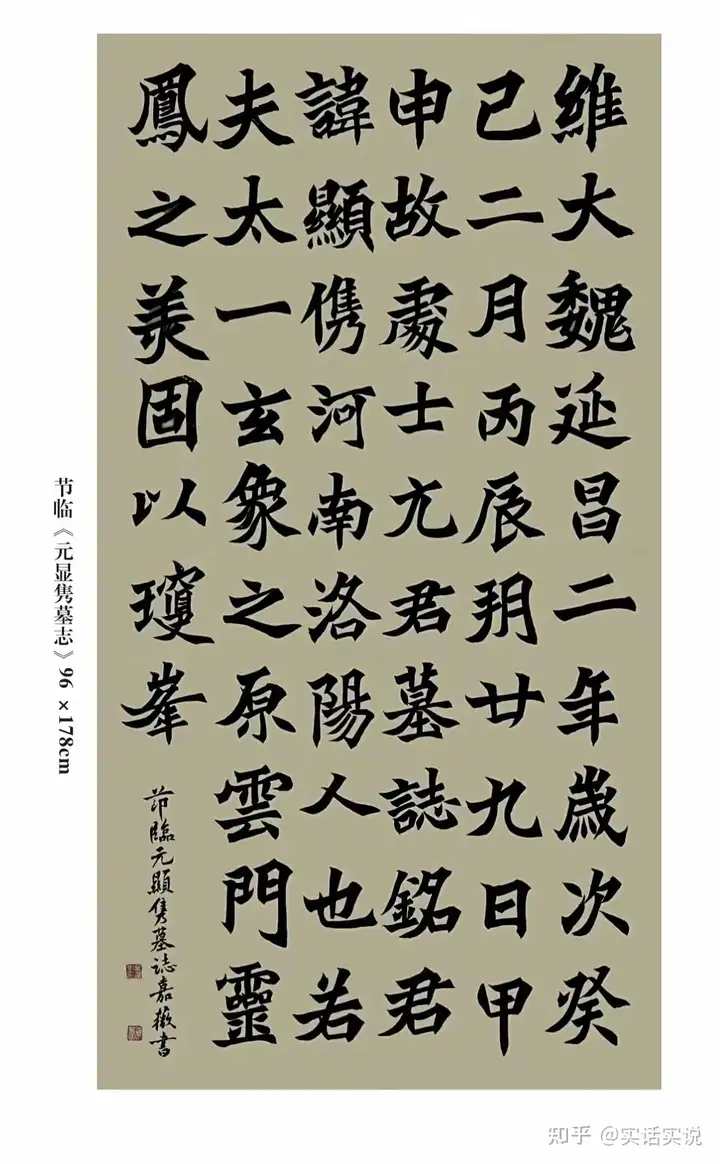 維大魏延昌二年歲次癸
已二月丙辰朔廿九日甲
申故處士元君墓誌銘君
諱顯儁河南洛陽人也若
夫太一玄象之原雲門靈
鳳之美固以瓊峯
節臨元顯雋墓誌嘉薇書
节临《元显隽墓志》96×178cm
知乎 @实话实说